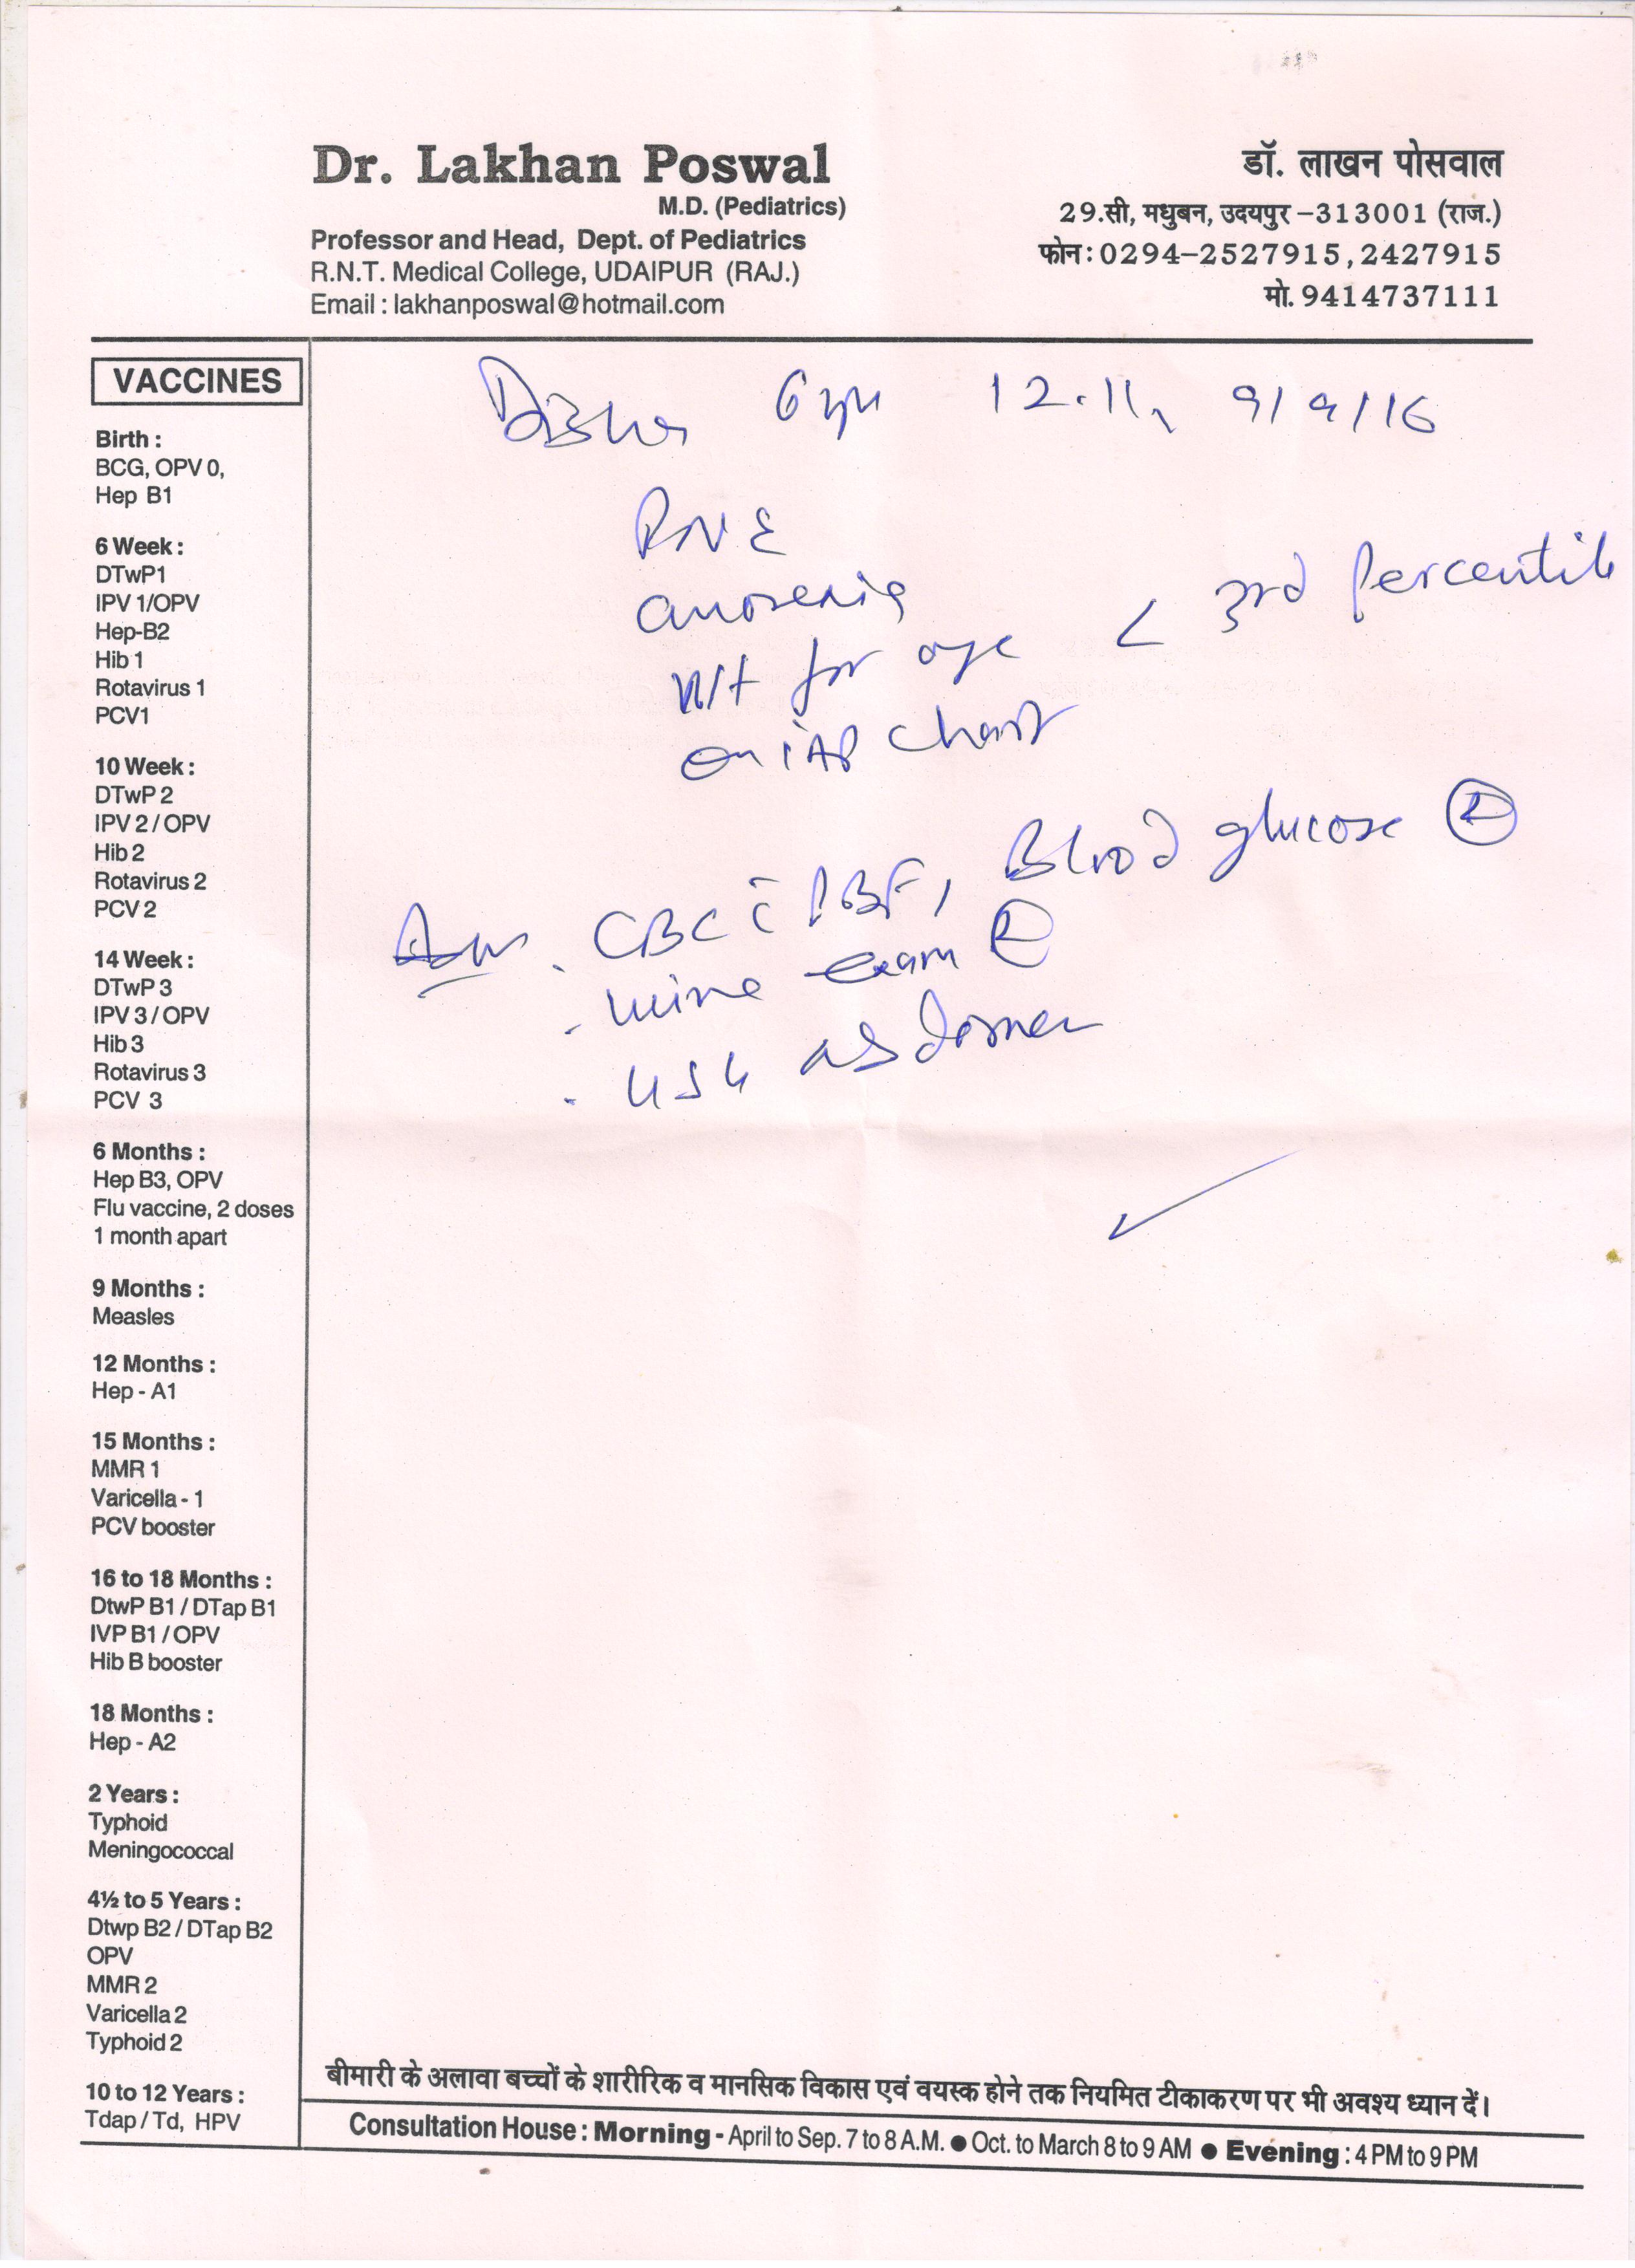 Dr. Lakhan Poswal
M.D. (Pediatrics)
Professor and Head, Dept. of Pediatrics
R.N.T. Medical College, UDAIPUR (RAJ.)
Email : lakhanposwal@hotmail.com
डॉ. लाखन पोसवाल
29.सी, मधुबन, उदयपुर -313001 (राज.)
फोन: 0294-2527915, 2427915
मो. 9414737111
VACCINES
Birth :
BCG, OPV 0,
Hep B1
6 Week :
DTwP1
IPV 1/OPV
Hep-B2
Hib 1
Rotavirus 1
PCV1
10 Week :
DTwP 2
IPV 2 / OPV
Hib 2
Rotavirus 2
PCV 2
14 Week :
DTwP 3
IPV 3 / OPV
Hib 3
Rotavirus 3
PCV 3
6 Months :
Hep B3, OPV
Flu vaccine, 2 doses
1 month apart
9 Months :
Measles
12 Months :
Hep - A1
15 Months :
MMR 1
Varicella - 1
PCV booster
16 to 18 Months :
DtwP B1 / DTap B1
IVP B1 / OPV
Hib B booster
18 Months :
Hep - A2
2 Years :
Typhoid
Meningococcal
4½ to 5 Years :
Dtwp B2 / DTap B2
OPV
MMR 2
Varicella 2
Typhoid 2
10 to 12 Years :
Tdap / Td, HPV
12.11, 9/9/16
anorexia
wt for age < 3rd Percentile
on IAP chart
CBC c̄ PBF, Blood glucose Ⓡ
. urine exam Ⓡ
. USG abdomen
बीमारी के अलावा बच्चों के शारीरिक व मानसिक विकास एवं वयस्क होने तक नियमित टीकाकरण पर भी अवश्य ध्यान दें।
Consultation House : Morning - April to Sep. 7 to 8 A.M. ● Oct. to March 8 to 9 AM ● Evening : 4 PM to 9 PM